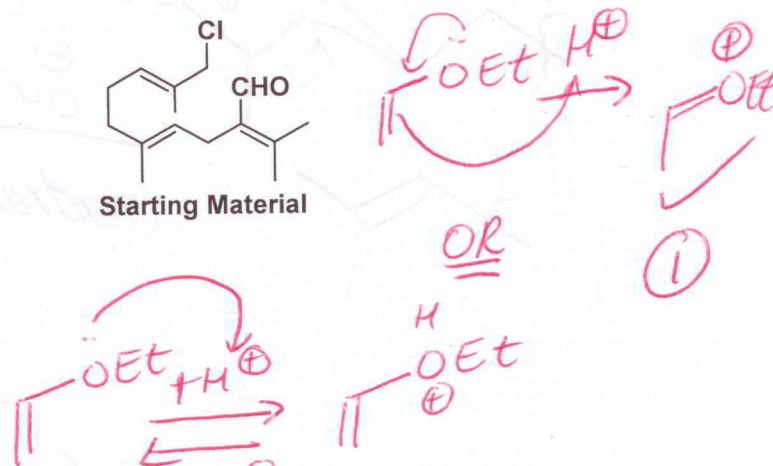 Cl
CHO
Starting Material
OEt H⊕
⊕
OEt
OR
①
H
OEt + H⊕
OEt
⊕